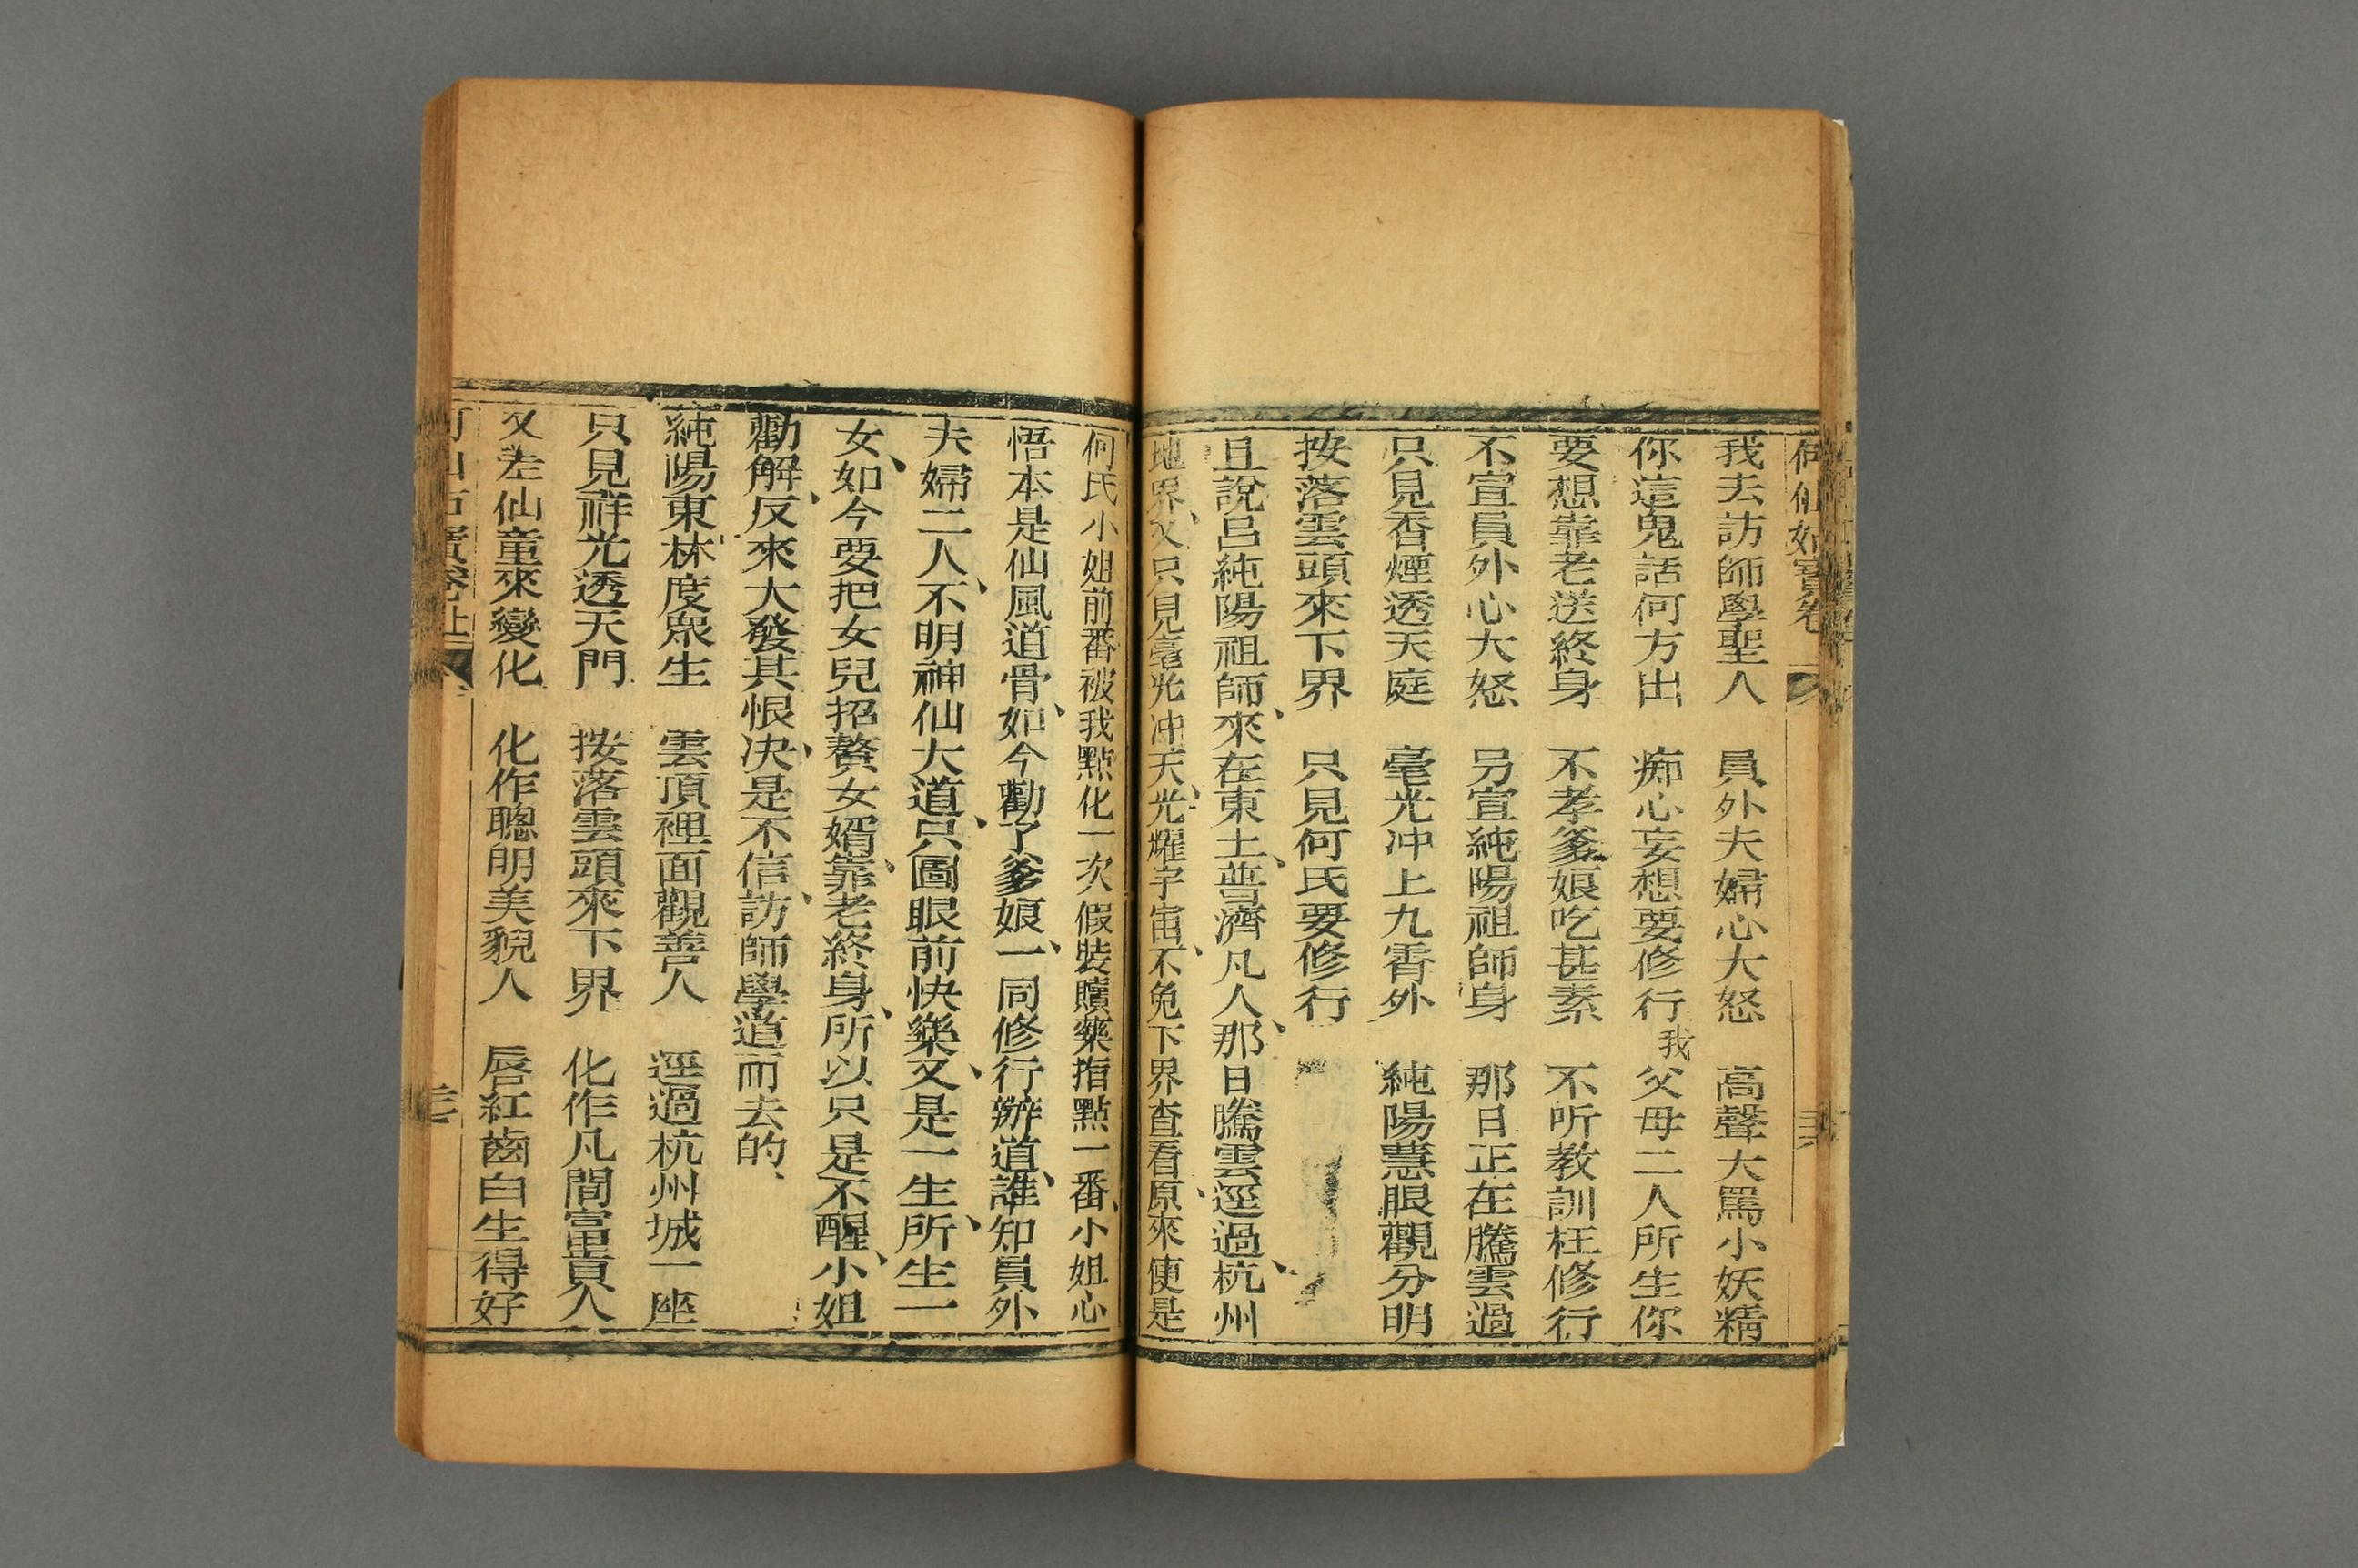 何仙姑寳卷
我去訪師學聖人　員外夫婦心大怒　高聲大罵小妖精
你這鬼話何方出　痴心妄想要修行　我父母二人所生你
要想靠老送終身　不孝爹娘吃甚素　不听教訓枉修行
不宣員外心大怒　另宣純陽祖師身　那日正在騰雲過
只見香煙透天庭　毫光冲上九霄外　純陽慧眼觀分明
按落雲頭來下界　只見何氏要修行
且說呂純陽祖師、來在東土、普濟凡人、那日騰雲逕過、杭州
地界、又只見毫光冲天、光耀宇宙、不免下界查看、原來便是
何氏小姐前番被我點化一次假裝贖藥指點一番、小姐心
悟本是仙風道骨、如今勸了爹娘、一同修行辦道、誰知員外
夫婦二人、不明神仙大道、只圖眼前快樂、又是一生、所生一
女、如今要把女兒招贅女婿、靠老終身、所以只是不醒、小姐
勸解、反來大發其恨、决是不信、訪師學道而去的、
純陽東林度衆生　雲頂裡面觀善人　逕過杭州城一座
只見祥光透天門　按落雲頭來下界　化作凡間富貴人
又差仙童來變化　化作聰明美貌人　唇紅齒白生得好